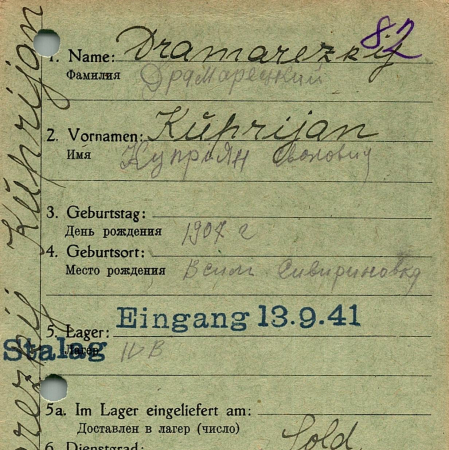 82
1. Name: Dramarezkij
Фамилия Драмарецкий
2. Vornamen: Kŭprijan
Имя Куприян
3. Geburtstag:
День рождения 1907 г
4. Geburtsort:
Место рождения
Eingang 13.9.41
5. Lager:
Stalag Лагерь IV B
5a. Im Lager eingeliefert am:
Доставлен в лагер (число)
6. Dienstgrad: Sold.
Kŭprijan